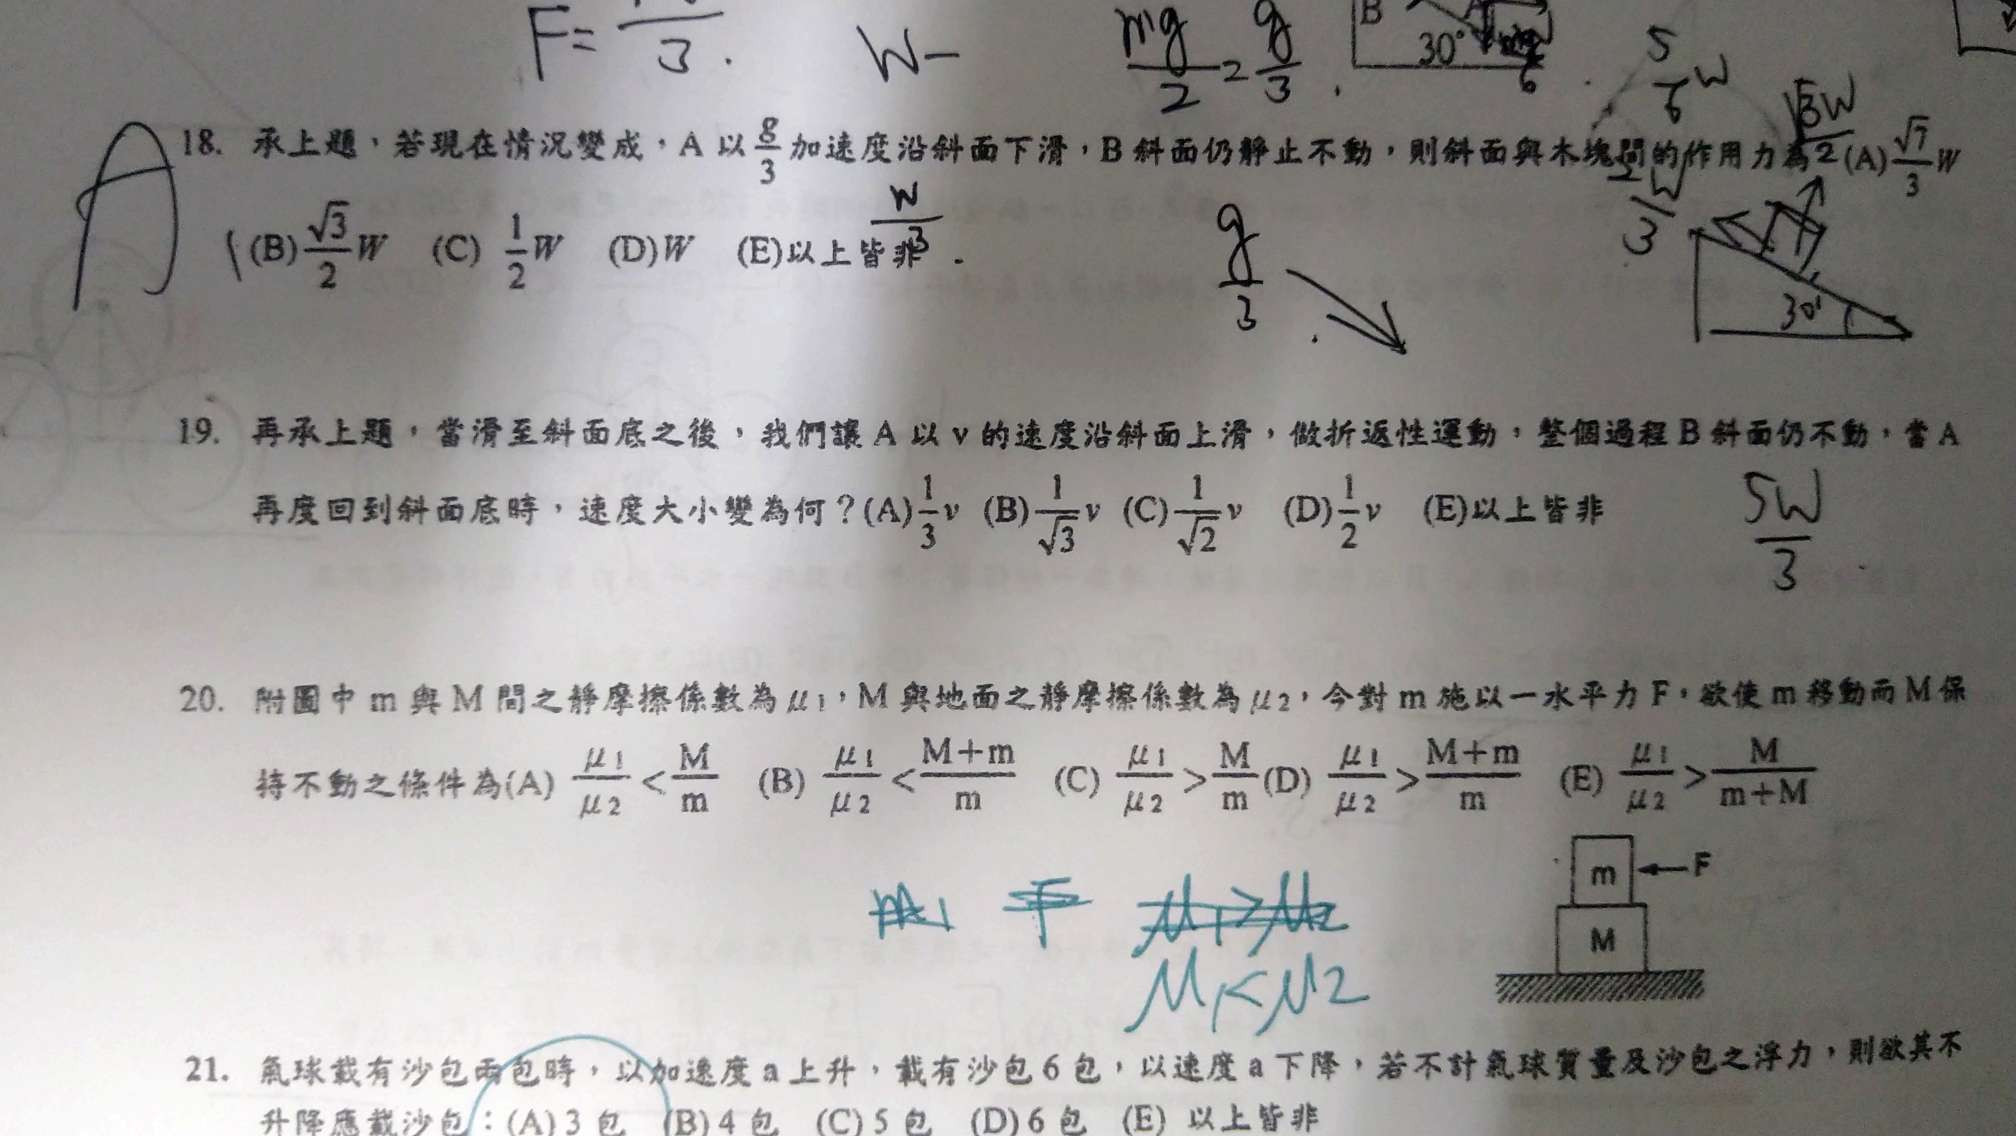 F= /3 .
W-
mg/2 = g/3 .
B A
30°
6
5/6 W
A
√3W/2
18. 承上題，若現在情況變成，A 以 g/3 加速度沿斜面下滑，B 斜面仍靜止不動，則斜面與木塊間的作用力為 (A) √7/3 W
(B) √3/2 W (C) 1/2 W (D) W (E)以上皆非
W/3
g/3
W/3
30°
19. 再承上題，當滑至斜面底之後，我們讓 A 以 v 的速度沿斜面上滑，做折返性運動，整個過程 B 斜面仍不動，當 A
再度回到斜面底時，速度大小變為何？(A) 1/3 v (B) 1/√3 v (C) 1/√2 v (D) 1/2 v (E)以上皆非
5W/3
20. 附圖中 m 與 M 間之靜摩擦係數為 μ1，M 與地面之靜摩擦係數為 μ2，今對 m 施以一水平力 F，欲使 m 移動而 M 保
持不動之條件為(A) μ1/μ2 < M/m (B) μ1/μ2 < M+m/m (C) μ1/μ2 > M/m (D) μ1/μ2 > M+m/m (E) μ1/μ2 > M/m+M
m F
M
μ1>μ2
μ1<μ2
21. 氣球載有沙包兩包時，以加速度 a 上升，載有沙包 6 包，以速度 a 下降，若不計氣球質量及沙包之浮力，則欲其不
升降應載沙包：(A) 3 包 (B) 4 包 (C) 5 包 (D) 6 包 (E) 以上皆非